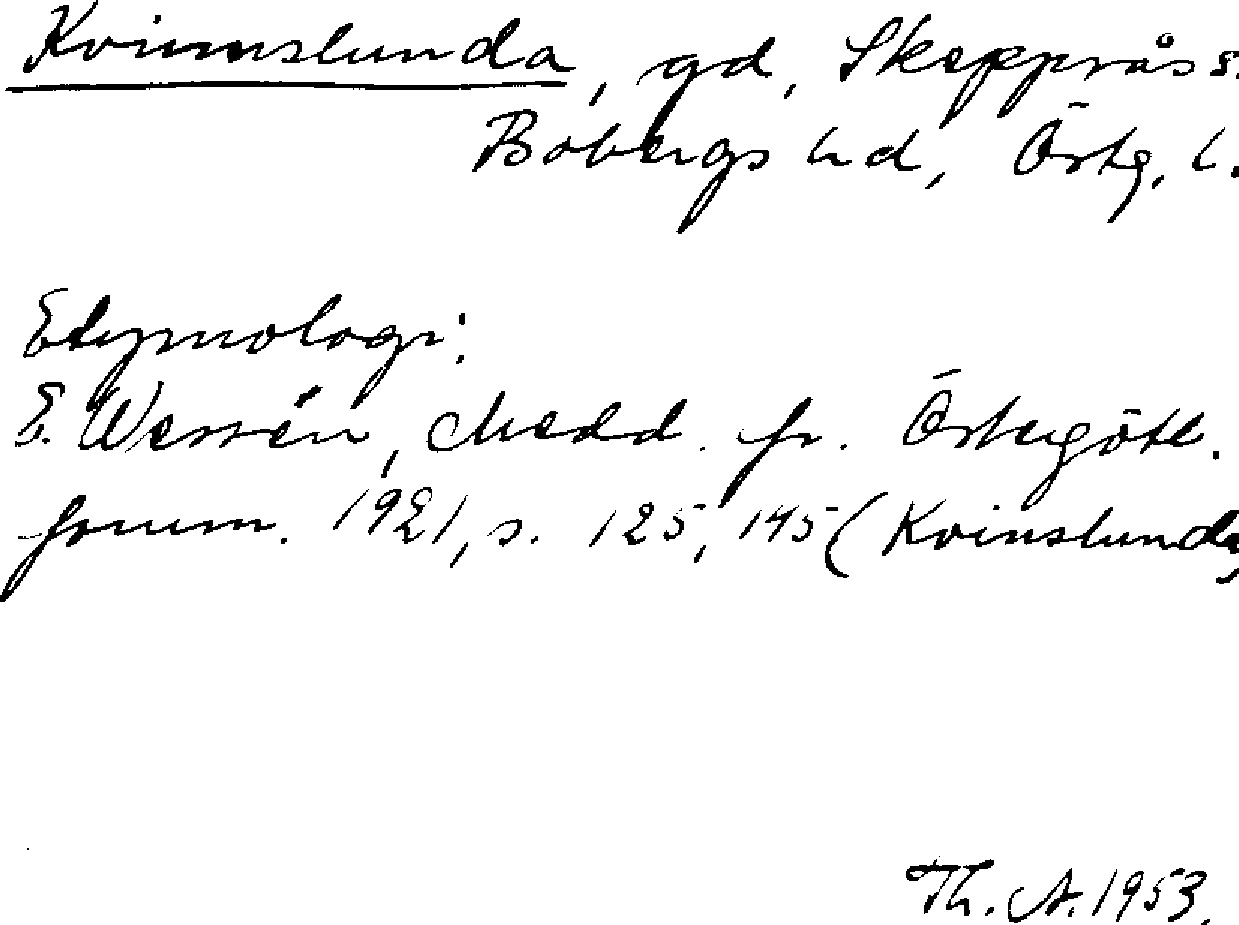 Kvimmslunda, gd, Skepprås s.
Bobergs hd, Östg. l.
Etymologi:
E. Wessén, Medd. fr. Östergötl.
fornm. 1921, s. 125, 145 (Kvinslunda)
Th. A. 1953.